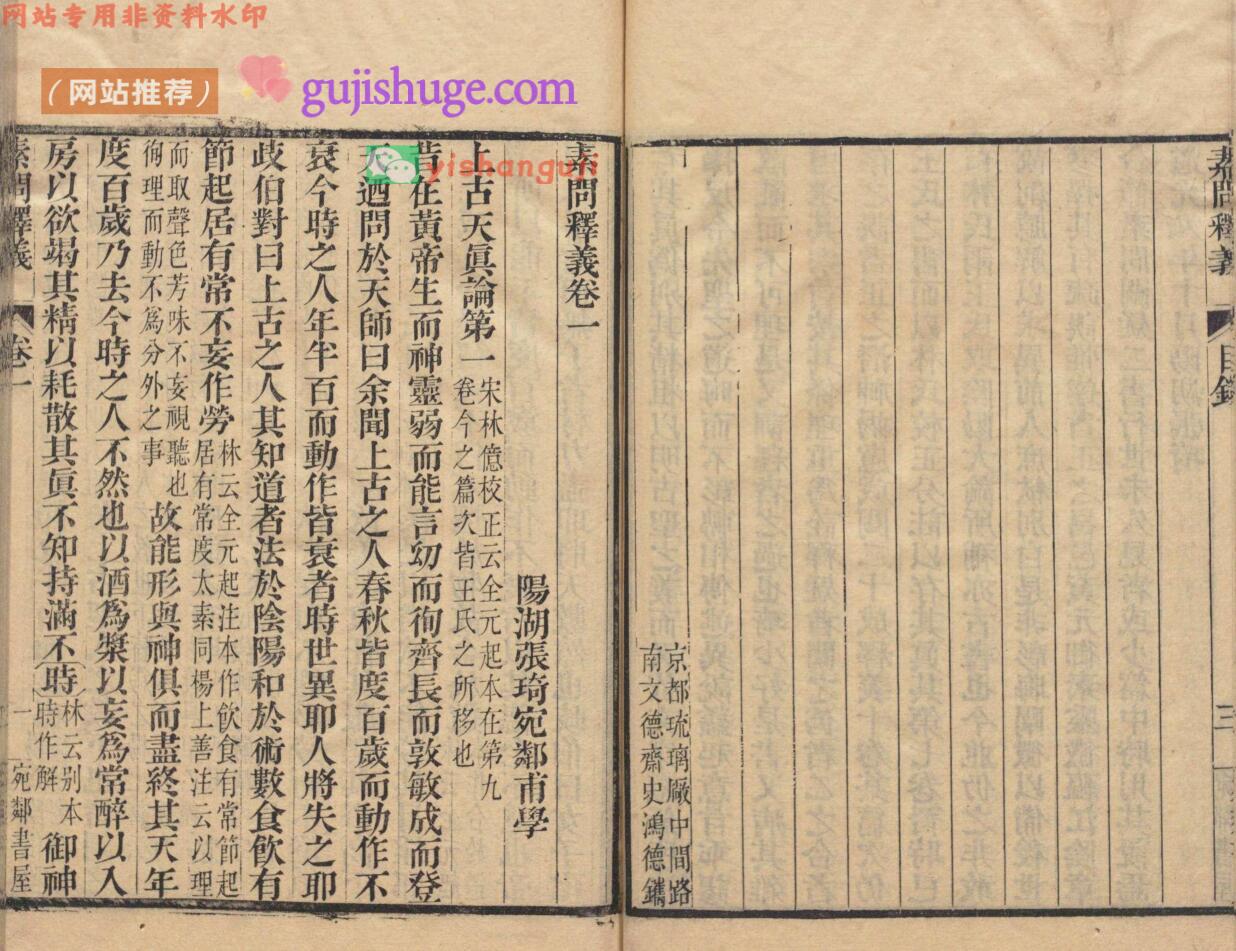 网站专用非资料水印
（网站推荐）
gujishuge.com
yishanguji
素問釋義
目錄
三
京都琉璃厰中間路
南文德齋史鴻德鐫
素問釋義卷一
陽湖張琦宛鄰甫學
上古天眞論第一
宋林億校正云全元起本在第九
卷今之篇次皆王氏之所移也
昔在黃帝生而神靈弱而能言幼而徇齊長而敦敏成而登
天迺問於天師曰余聞上古之人春秋皆度百歲而動作不
衰今時之人年半百而動作皆衰者時世異耶人將失之耶
歧伯對曰上古之人其知道者法於陰陽和於術數食飮有
節起居有常不妄作勞
林云全元起注本作飮食有常節起
居有常度太素同楊上善注云以理
而取聲色芳味不妄視聽也
徇理而動不爲分外之事
故能形與神俱而盡終其天年
度百歲乃去今時之人不然也以酒爲漿以妄爲常醉以入
房以欲竭其精以耗散其眞不知持滿不時
林云别本
時作解
御神
素問釋義
卷一
一
宛鄰書屋